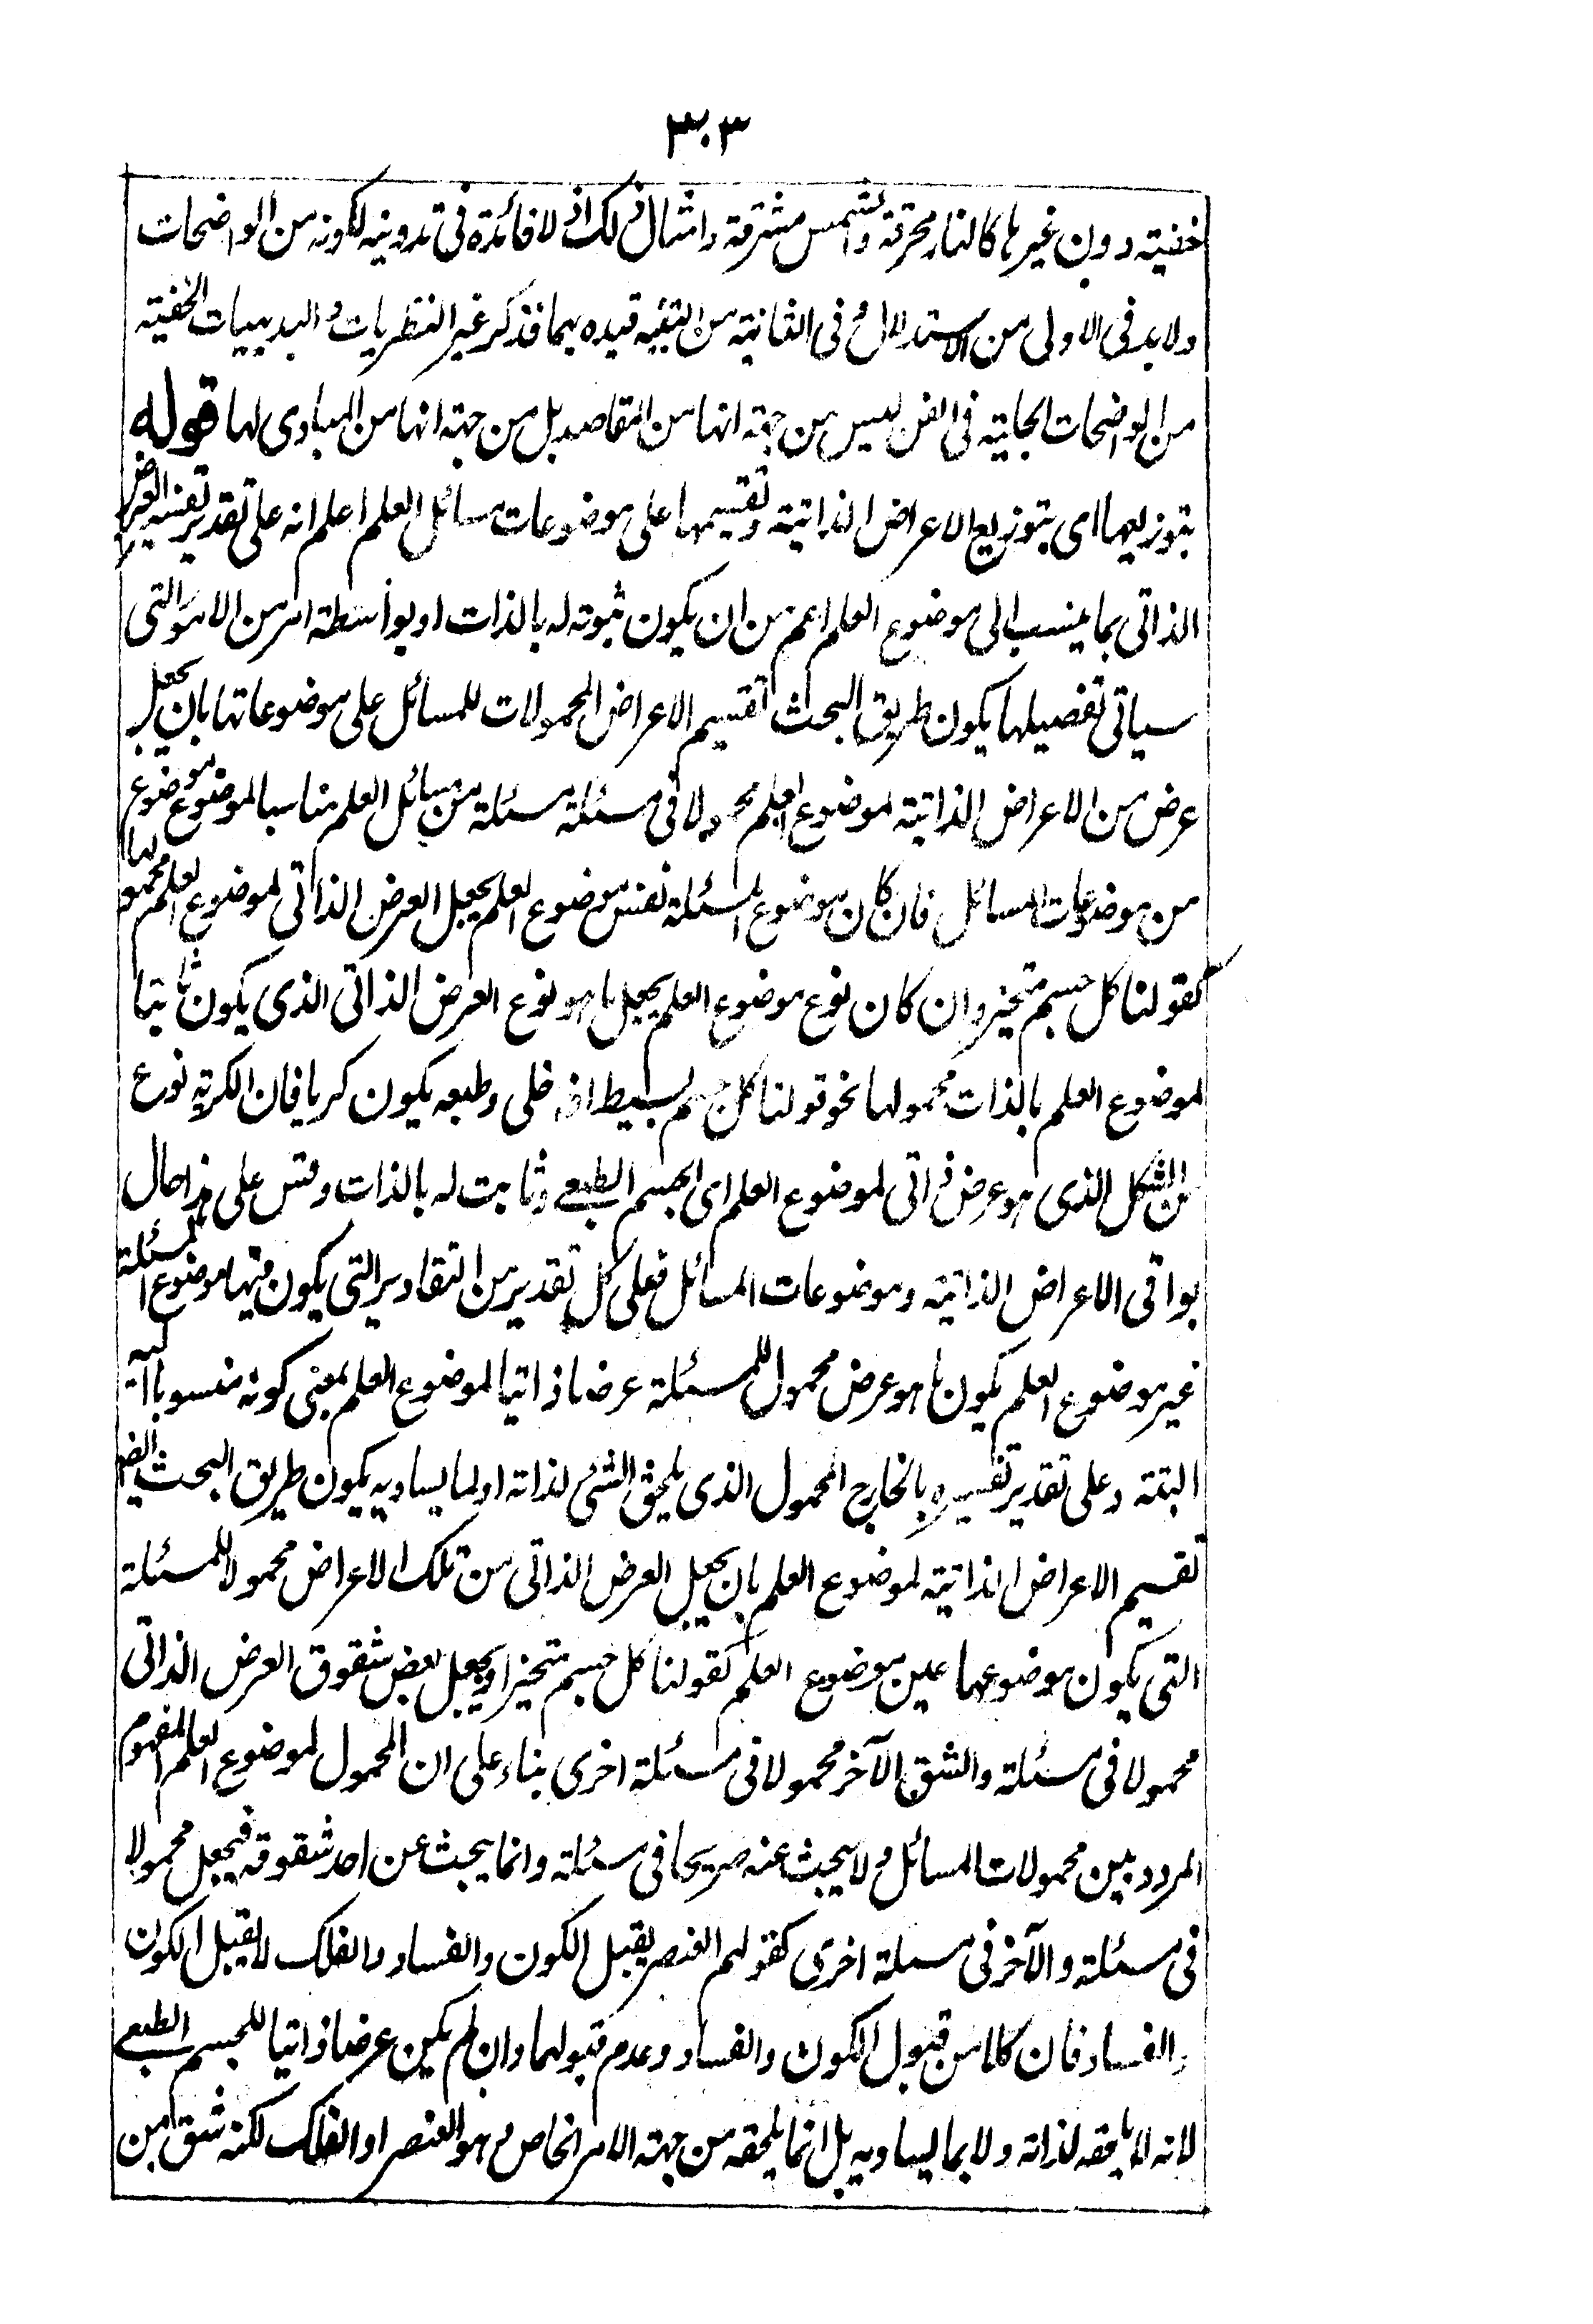 ٣٠٣
خفيته دون غيرها كالنار محرقة والشمس مشرقة وامثال ذلك اذ لا فائدة فى تدوينه لكونه من الواضحات
ولابد فى الاولى من الاستدلال وفى الثانية من التنبيه قيده بهما فذكر غير النظريات والبديهيات الخفيته
من الواضحات الجلية فى الفن ليس من جهته انها من المقاصد بل من جهته انها من المبادى لها قوله
بتوزيعها اى بتوزيع الاعراض الذاتية وتقسيمها على موضوعات مسائل العلم اعلم انه على تقدير تفسير العرض
الذاتى بما ينسب الى موضوع العلم اعم من ان يكون ثبوته له بالذات او بواسطة امر من الامور التى
سياتى تفصيلها يكون طريق البحث تقسيم الاعراض المحمولات للمسائل على موضوعاتها بان يجعل
عرض من الاعراض الذاتية لموضوع العلم محمولا فى مسئلة مسئلة من مسائل العلم مناسبا لموضوع موضوع
من موضوعات المسائل فان كان موضوع المسئلة نفس موضوع العلم يجعل العرض الذاتى لموضوع العلم محمولا لها
كقولنا كل جسم متحيز وان كان نوع موضوع العلم يجعل ما هو نوع العرض الذاتى الذى يكون ثابتا
لموضوع العلم بالذات محمولها نحو قولنا كل جسم بسيط اذا خلى وطبعه يكون كريا فان الكرية نوع
من الشكل الذى هو عرض ذاتى لموضوع العلم اى الجسم الطبعى وثابت له بالذات وقس على هذا حال
بواقى الاعراض الذاتية وموضوعات المسائل فعلى كل تقدير من التقادير التى يكون فيها موضوع المسئلة
غير موضوع العلم يكون ما هو عرض محمول للمسئلة عرضا ذاتيا لموضوع العلم بمعنى كونه منسوبا اليه
البتة وعلى تقدير تفسيره بالخارج المحمول الذى يلحق الشئ لذاته او لما يساويه يكون طريق البحث ايضا
تقسيم الاعراض الذاتية لموضوع العلم بان يجعل العرض الذاتى من تلك الاعراض محمولا للمسئلة
التى يكون موضوعها عين موضوع العلم كقولنا كل جسم متحيز او يجعل بعض شقوق العرض الذاتى
محمولا فى مسئلة والشق الآخر محمولا فى مسئلة اخرى بناء على ان المحمول لموضوع العلم المفهوم
المردد بين محمولات المسائل ولا يبحث عنه صريحا فى مسئلة وانما يبحث عن احد شقوقه فيجعل محمولا
فى مسئلة والآخر فى مسئلة اخرى كقولهم العنصر يقبل الكون والفساد والفلك لا يقبل الكون
والفساد فان كلا من قبول الكون والفساد وعدم قبولهما وان لم يكن عرضا ذاتيا للجسم الطبعى
لانه لا يلحقه لذاته ولا بما يساويه بل انما يلحقه من جهته الامر الخاص وهو العنصر او الفلك لكنه شق من